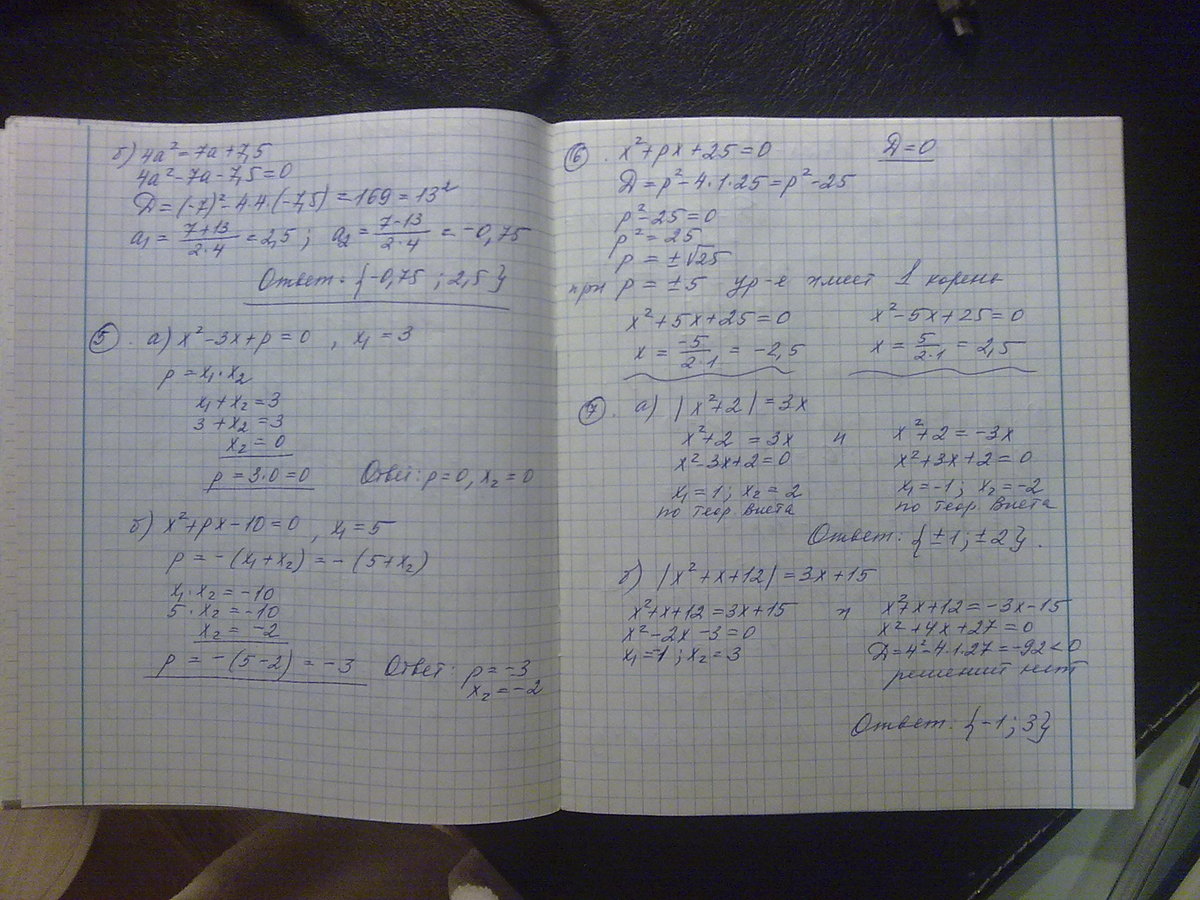 б) 4a² = 7a + 7,5
4a² - 7a - 7,5 = 0
Д = (-7)² - 4·4·(-7,5) = 169 = 13²
a₁ = (7+13)/(2·4) = 2,5 ; a₂ = (7-13)/(2·4) = -0,75
Ответ: {-0,75 ; 2,5}
5. а) x² - 3x + p = 0 , x₁ = 3
p = x₁·x₂
x₁ + x₂ = 3
3 + x₂ = 3
x₂ = 0
p = 3·0 = 0 Ответ: p = 0, x₂ = 0
б) x² + px - 10 = 0 , x₁ = 5
p = -(x₁ + x₂) = -(5 + x₂)
x₁·x₂ = -10
5·x₂ = -10
x₂ = -2
p = -(5-2) = -3 Ответ: p = -3
x₂ = -2
6. x² + px + 25 = 0 Д = 0
Д = p² - 4·1·25 = p² - 25
p² - 25 = 0
p² = 25
p = ±√25
при p = ±5 ур-е имеет 1 корень
x² + 5x + 25 = 0 x² - 5x + 25 = 0
x = -5/(2·1) = -2,5 x = 5/(2·1) = 2,5
7. а) |x² + 2| = 3x
x² + 2 = 3x и x² + 2 = -3x
x² - 3x + 2 = 0 x² + 3x + 2 = 0
x₁ = 1 ; x₂ = 2 x₁ = -1 ; x₂ = -2
по теор. Виета по теор. Виета
Ответ: {±1 ; ±2}.
б) |x² + x + 12| = 3x + 15
x² + x + 12 = 3x + 15 и x² + x + 12 = -3x - 15
x² - 2x - 3 = 0 x² + 4x + 27 = 0
x₁ = -1 ; x₂ = 3 Д = 4² - 4·1·27 = -92 < 0
решений нет
Ответ: {-1 ; 3}